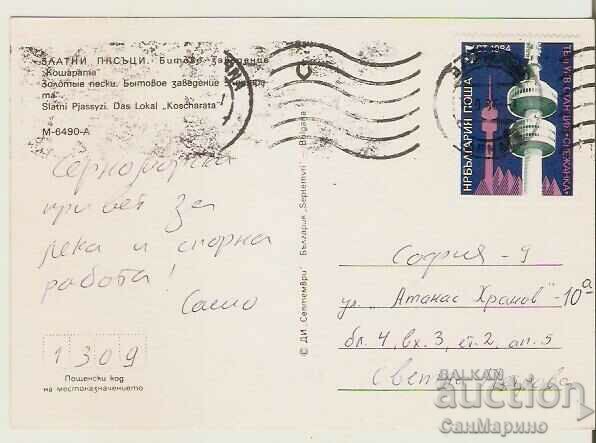 ЗЛАТНИ ПЯСЪЦИ. Битово заведение
"Кошарата"
Золотые пески. Бытовое заведение
Slatni Pjassyzi. Das Lokal „Koscharata"
М-6490-А
Черноморски
привет за
лека и спорна
работа!
Сашо
1309
Пощенски код
на местоназначението
© ДИ „Септември" България „Septemvri" — Bulgaria
5 СТ. 1984
НР БЪЛГАРИЯ ПОЩА
СНЕЖАНКА
София - 9
ул. „Атанас Храмов" - 10а
бл. 4, вх. 3, ет. 2, ап. 5
BALKAN
auction
СанМарино